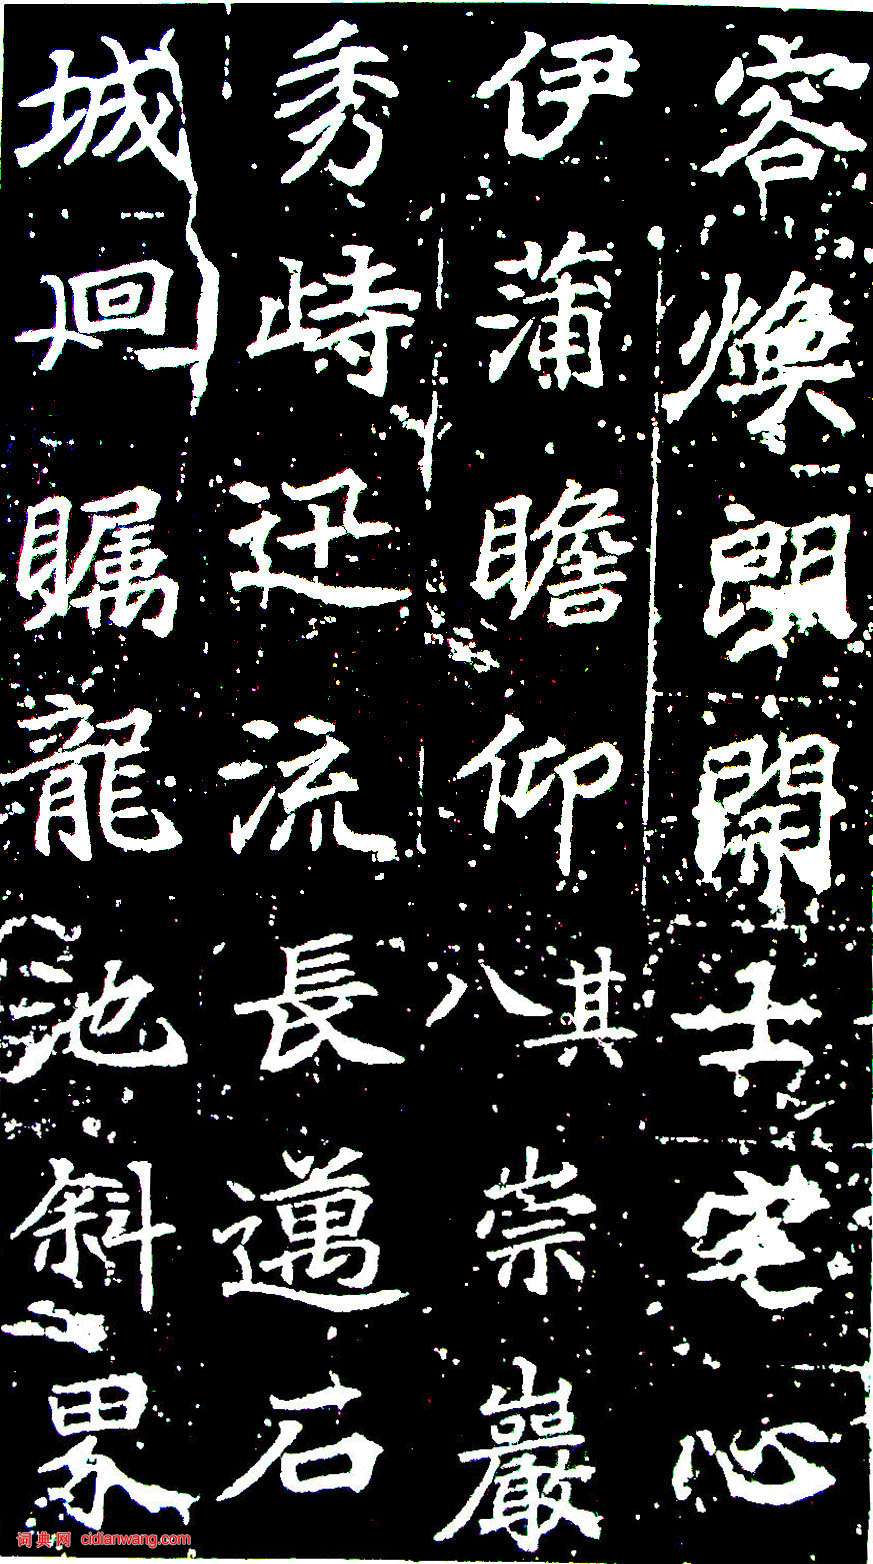 容煥朗開士宅心
伊蒲瞻仰其八崇巖
秀峙迅流長邁石
城迴矚龍池斜界
词典网 cidianwang.com